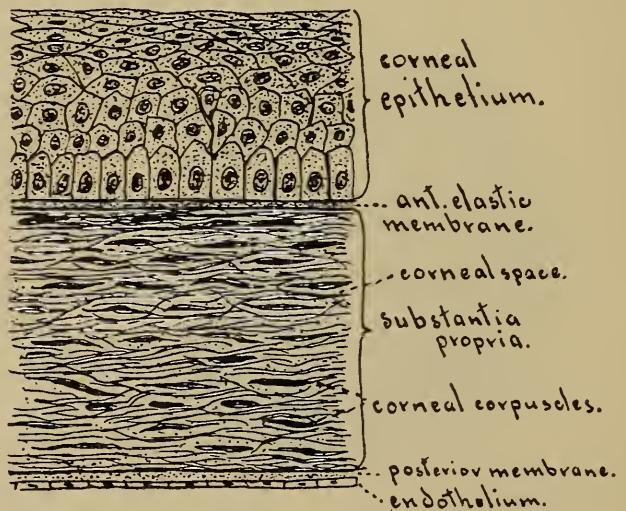 corneal
epithelium.
ant. elastic
membrane.
corneal space.
substantia
propria.
corneal corpuscles.
posterior membrane.
endothelium.